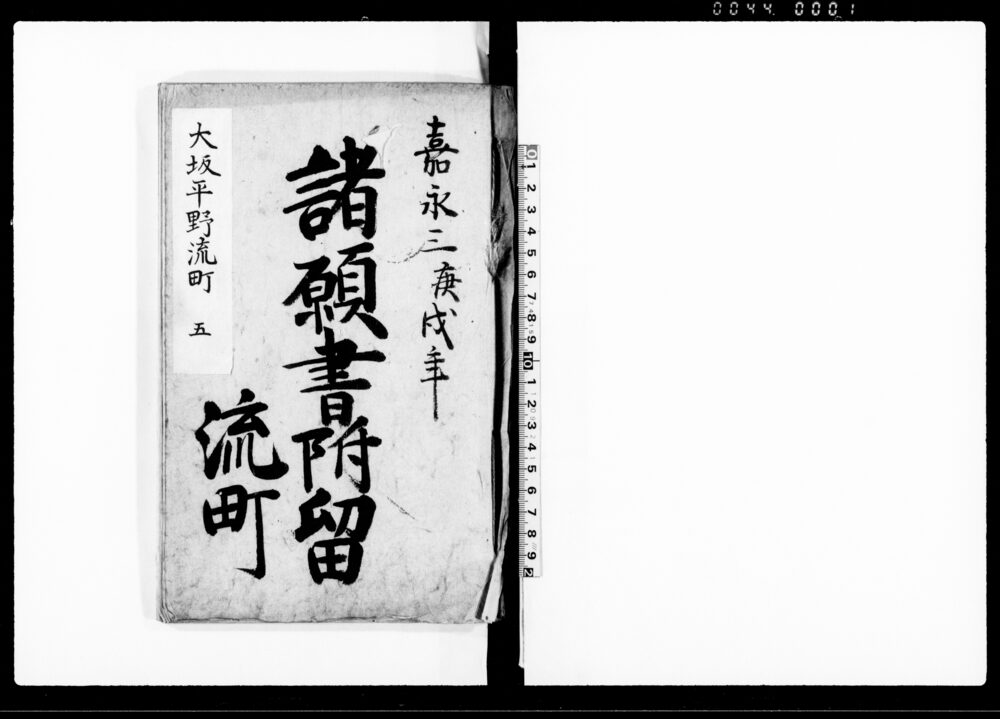 0044 0001
嘉永三庚戌年
諸願書附留
流町
大坂平野流町 五
0 1 2 3 4 5 6 7 8 9 10 1 2 3 4 5 6 7 8 9 2